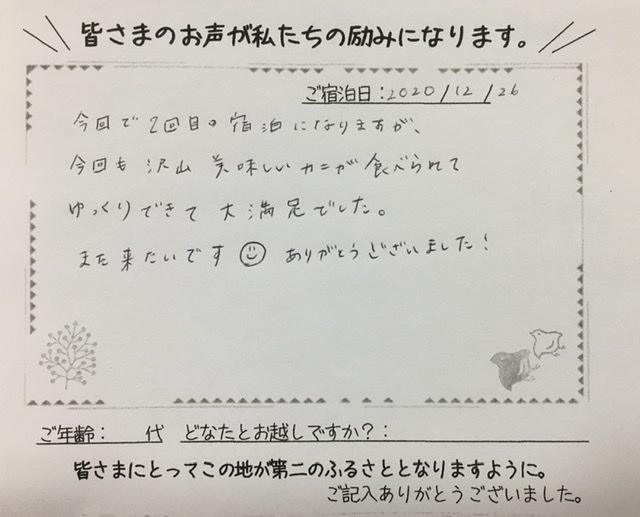 皆さまのお声が私たちの励みになります。
ご宿泊日:2020/12/26
今回で2回目の宿泊になりますが、
今回も沢山美味しいカニが食べられて
ゆっくりできて大満足でした。
また来たいです☺ありがとうございました!
ご年齢: 代 どなたとお越しですか?:
皆さまにとってこの地が第二のふるさととなりますように。
ご記入ありがとうございました。